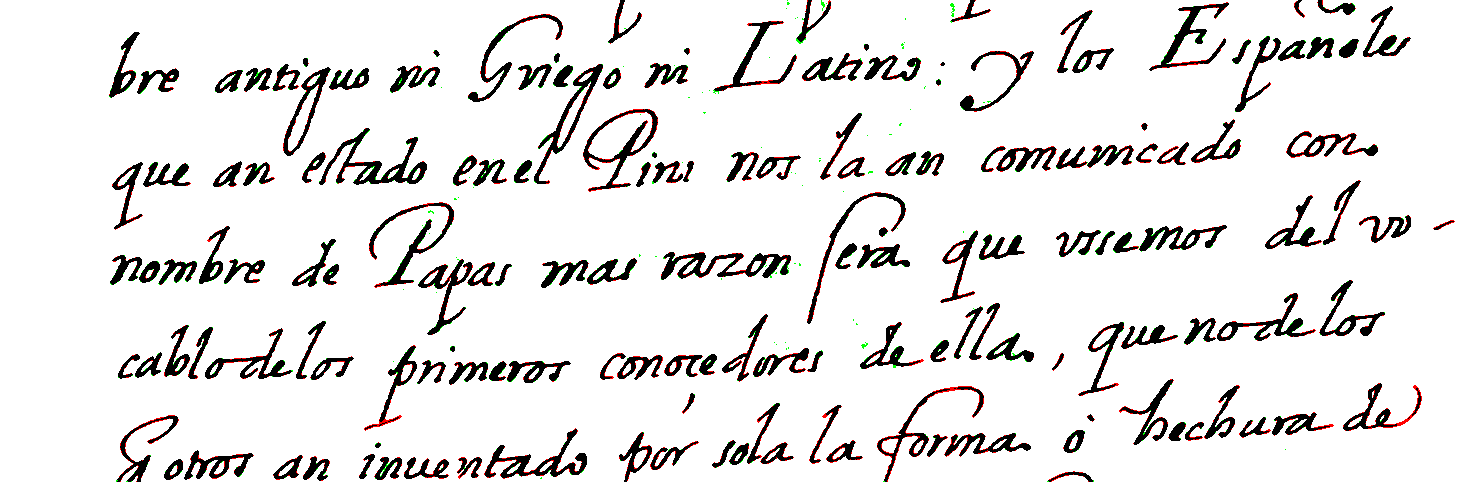 bre antiguo ni Griego ni Latino: y los Españoles
que an estado en el Piru nos la an comunicado con
nombre de Papas mas razon sera que vssemos del vo-
cablo de los primeros conocedores de ella, que no de los
q otros an inuentado por sola la forma ó hechura de